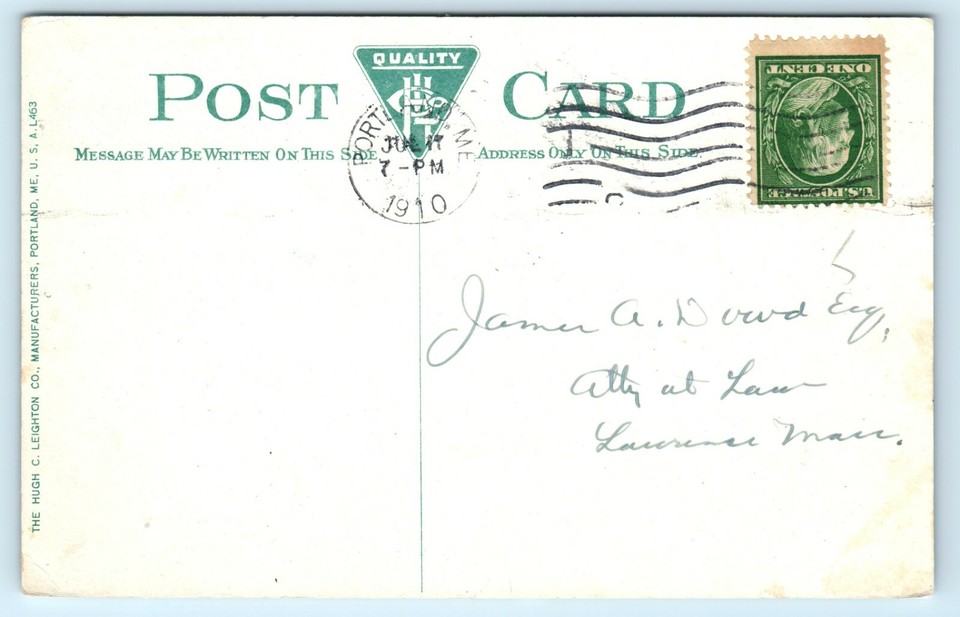 QUALITY
POST CARD
MESSAGE MAY BE WRITTEN ON THIS SIDE
ADDRESS ONLY ON THIS SIDE.
PORTLAND, ME
JUL 17
7-PM
1910
ONE CENT
U.S. POSTAGE
James A. Dowd Esq,
Atty at Law
Lawrence Mass.
THE HUGH C. LEIGHTON CO., MANUFACTURERS, PORTLAND, ME., U. S. A. L463